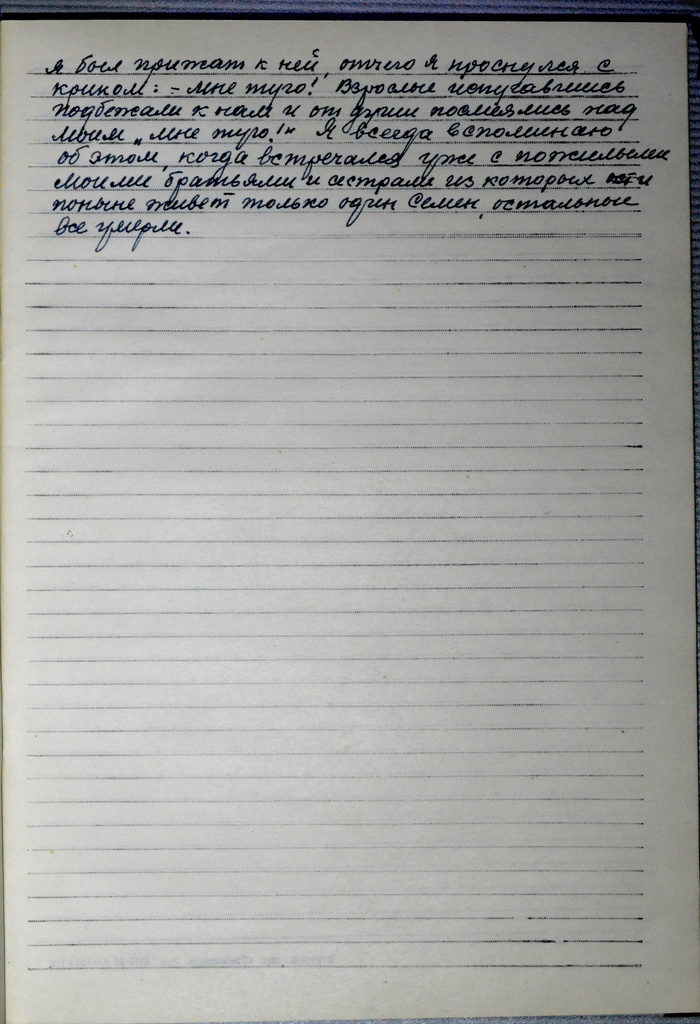 я был прижат к ней, отчего я проснулся с
криком: - мне туго! Взрослые испугавшись
подбежали к нам и от души посмеялись над
моим „мне туго!" Я всегда вспоминаю
об этом, когда встречался уже с пожилыми
моими братьями и сестрами из которых и
поныне живет только один Семен, остальные
все умерли.